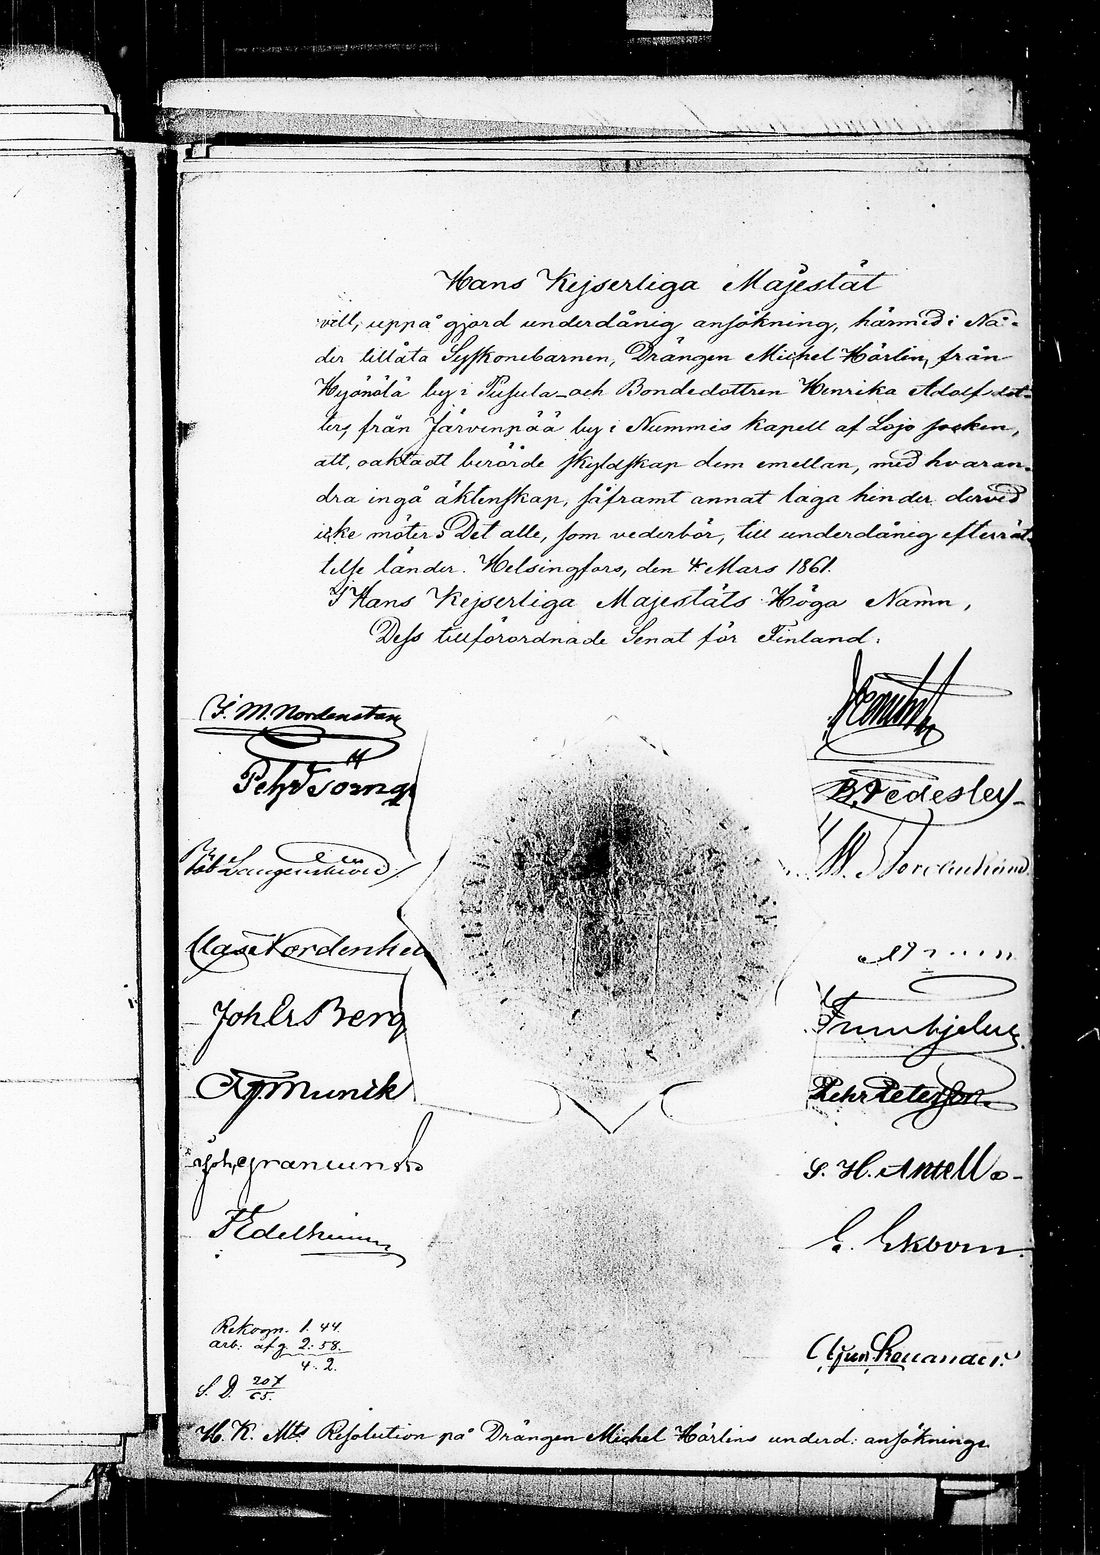 Hans Kejserliga Majestät
vill, uppå gjord underdånig ansökning, härmed i Nå-
der tillåta Syskonebarnen, Drängen Michel Hörlin, från
Hyönölä by i Pusula och Bondedottren Henrika Adolfsdot-
ter, från Järvenpää by i Nummis kapell af Lojo socken,
att, oaktadt berörde skyldskap dem emellan, med hvaran-
dra ingå äktenskap, såframt annat laga hinder dervid
icke möter; Det alle, som vederbör, till underdånig efterrät-
telse länder. Helsingfors, den 4 Mars 1861.
I Hans Kejserliga Majestäts Höga Namn,
Dess tillförordnade Senat för Finland:
J. M. Nordenstam
B. Federley
Rob Langenskiöld
Clas Nordenhei
Joh Er Berg
Munck
Pehr Peterson
S. H. Antell
F Edelheim
E. Ekbom
Rekogn. 1. 44.
arb: afg 2: 58.
4. 2.
S. D. 207/65.
H. K. Mts Resolution på Drängen Michel Hörlins underd: ansökning.